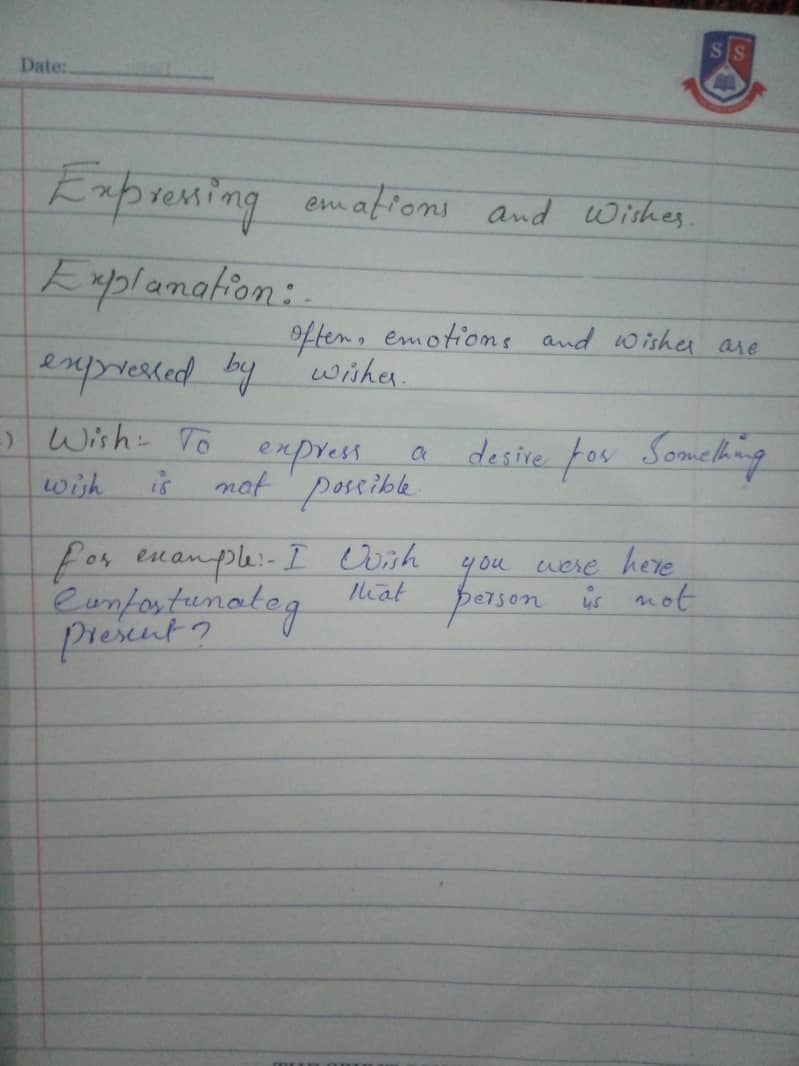 Date:
S S
Expressing emations and wishes.
Explanation:-
Often, emotions and wishes are
expressed by wishes.
) Wish:- To express a desire for Something
wish is not possible.
For example:- I Wish you were here
Eunfortunateg that person is not
present?